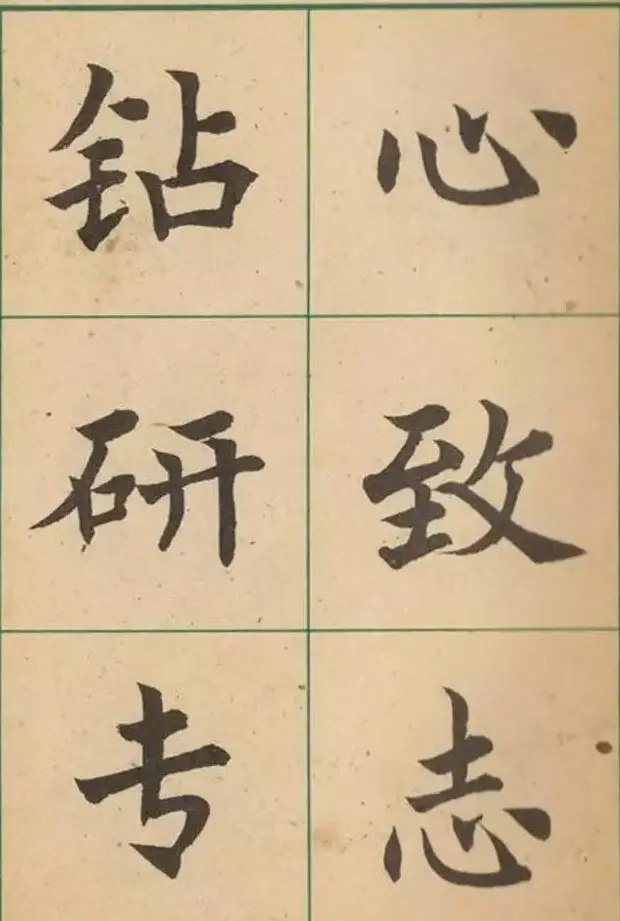 心致志
钻研专